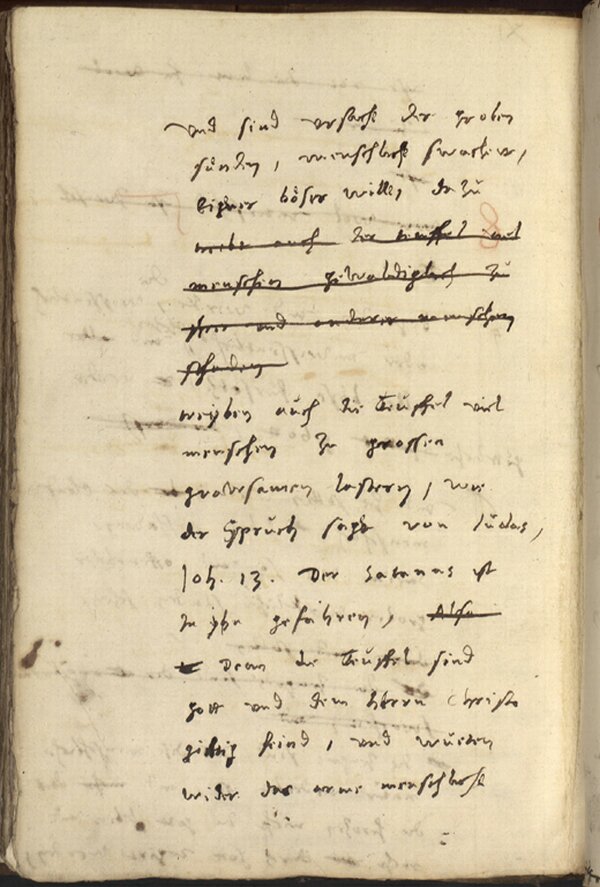 und sind ursach der groben
sünden, menschlich swacheit,
eigner böser wille, dazu
treibt auch der teuffel viel
menschen gewaldiglich zu
yhrer und anderer menschen
schaden
treyben auch die Teuffel viel
menschen zu grossen
grawsamen lastern, wie
der Spruch sagt von Judas,
Joh. 13. Der Satanas ist
in yhn gefahren, Also
Denn die Teuffel sind
gott und dem herrn Christo
gifftig feind, und wueten
wider das arme menschlich